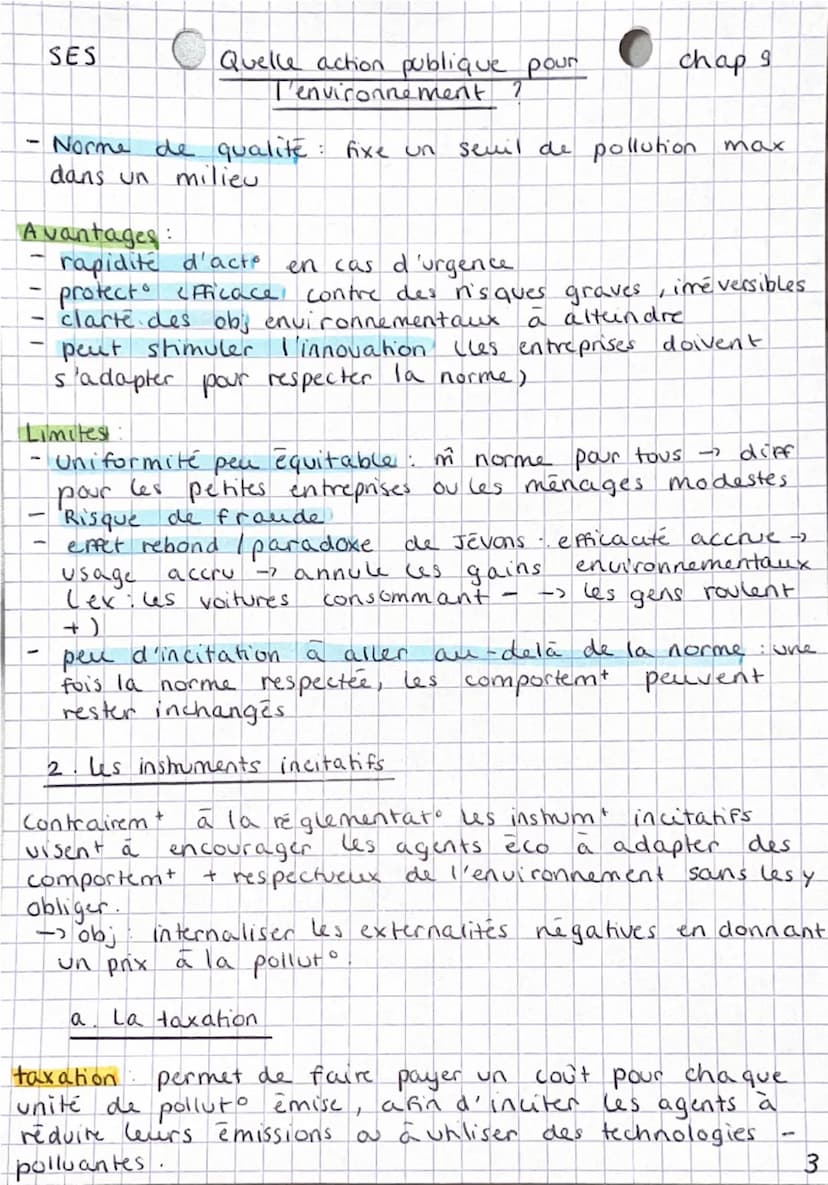 SES Quelle action publique pour chap 9
l'environnement ?
- Norme de qualité : fixe un seuil de pollution max
dans un milieu
Avantages :
- rapidité d'act° en cas d'urgence
- protect° efficace contre des risques graves, irréversibles
- clarté des obj environnementaux à atteindre
- peut stimuler l'innovation (les entreprises doivent
s'adapter pour respecter la norme)
Limites :
- Uniformité peu équitable : m̂ norme pour tous -> diff
pour les petites entreprises ou les ménages modestes
- Risque de fraude
- effet rebond / paradoxe de Jévons : efficacité accrue ->
usage accru -> annule les gains environnementaux
(ex : les voitures consommant - -> les gens roulent
+)
- peu d'incitation à aller au-delà de la norme : une
fois la norme respectée, les comportemt peuvent
rester inchangés
2. Les instruments incitatifs
Contrairemt à la réglementat° les instrumt incitatifs
visent à encourager les agents éco à adapter des
comportemt + respectueux de l'environnement sans les y
obliger.
-> obj : internaliser les externalités négatives en donnant
un prix à la pollut°.
a. La taxation
taxation : permet de faire payer un coût pour chaque
unité de pollut° émise, afin d'inciter les agents à
réduire leurs émissions ou à utiliser des technologies -
polluantes.
3